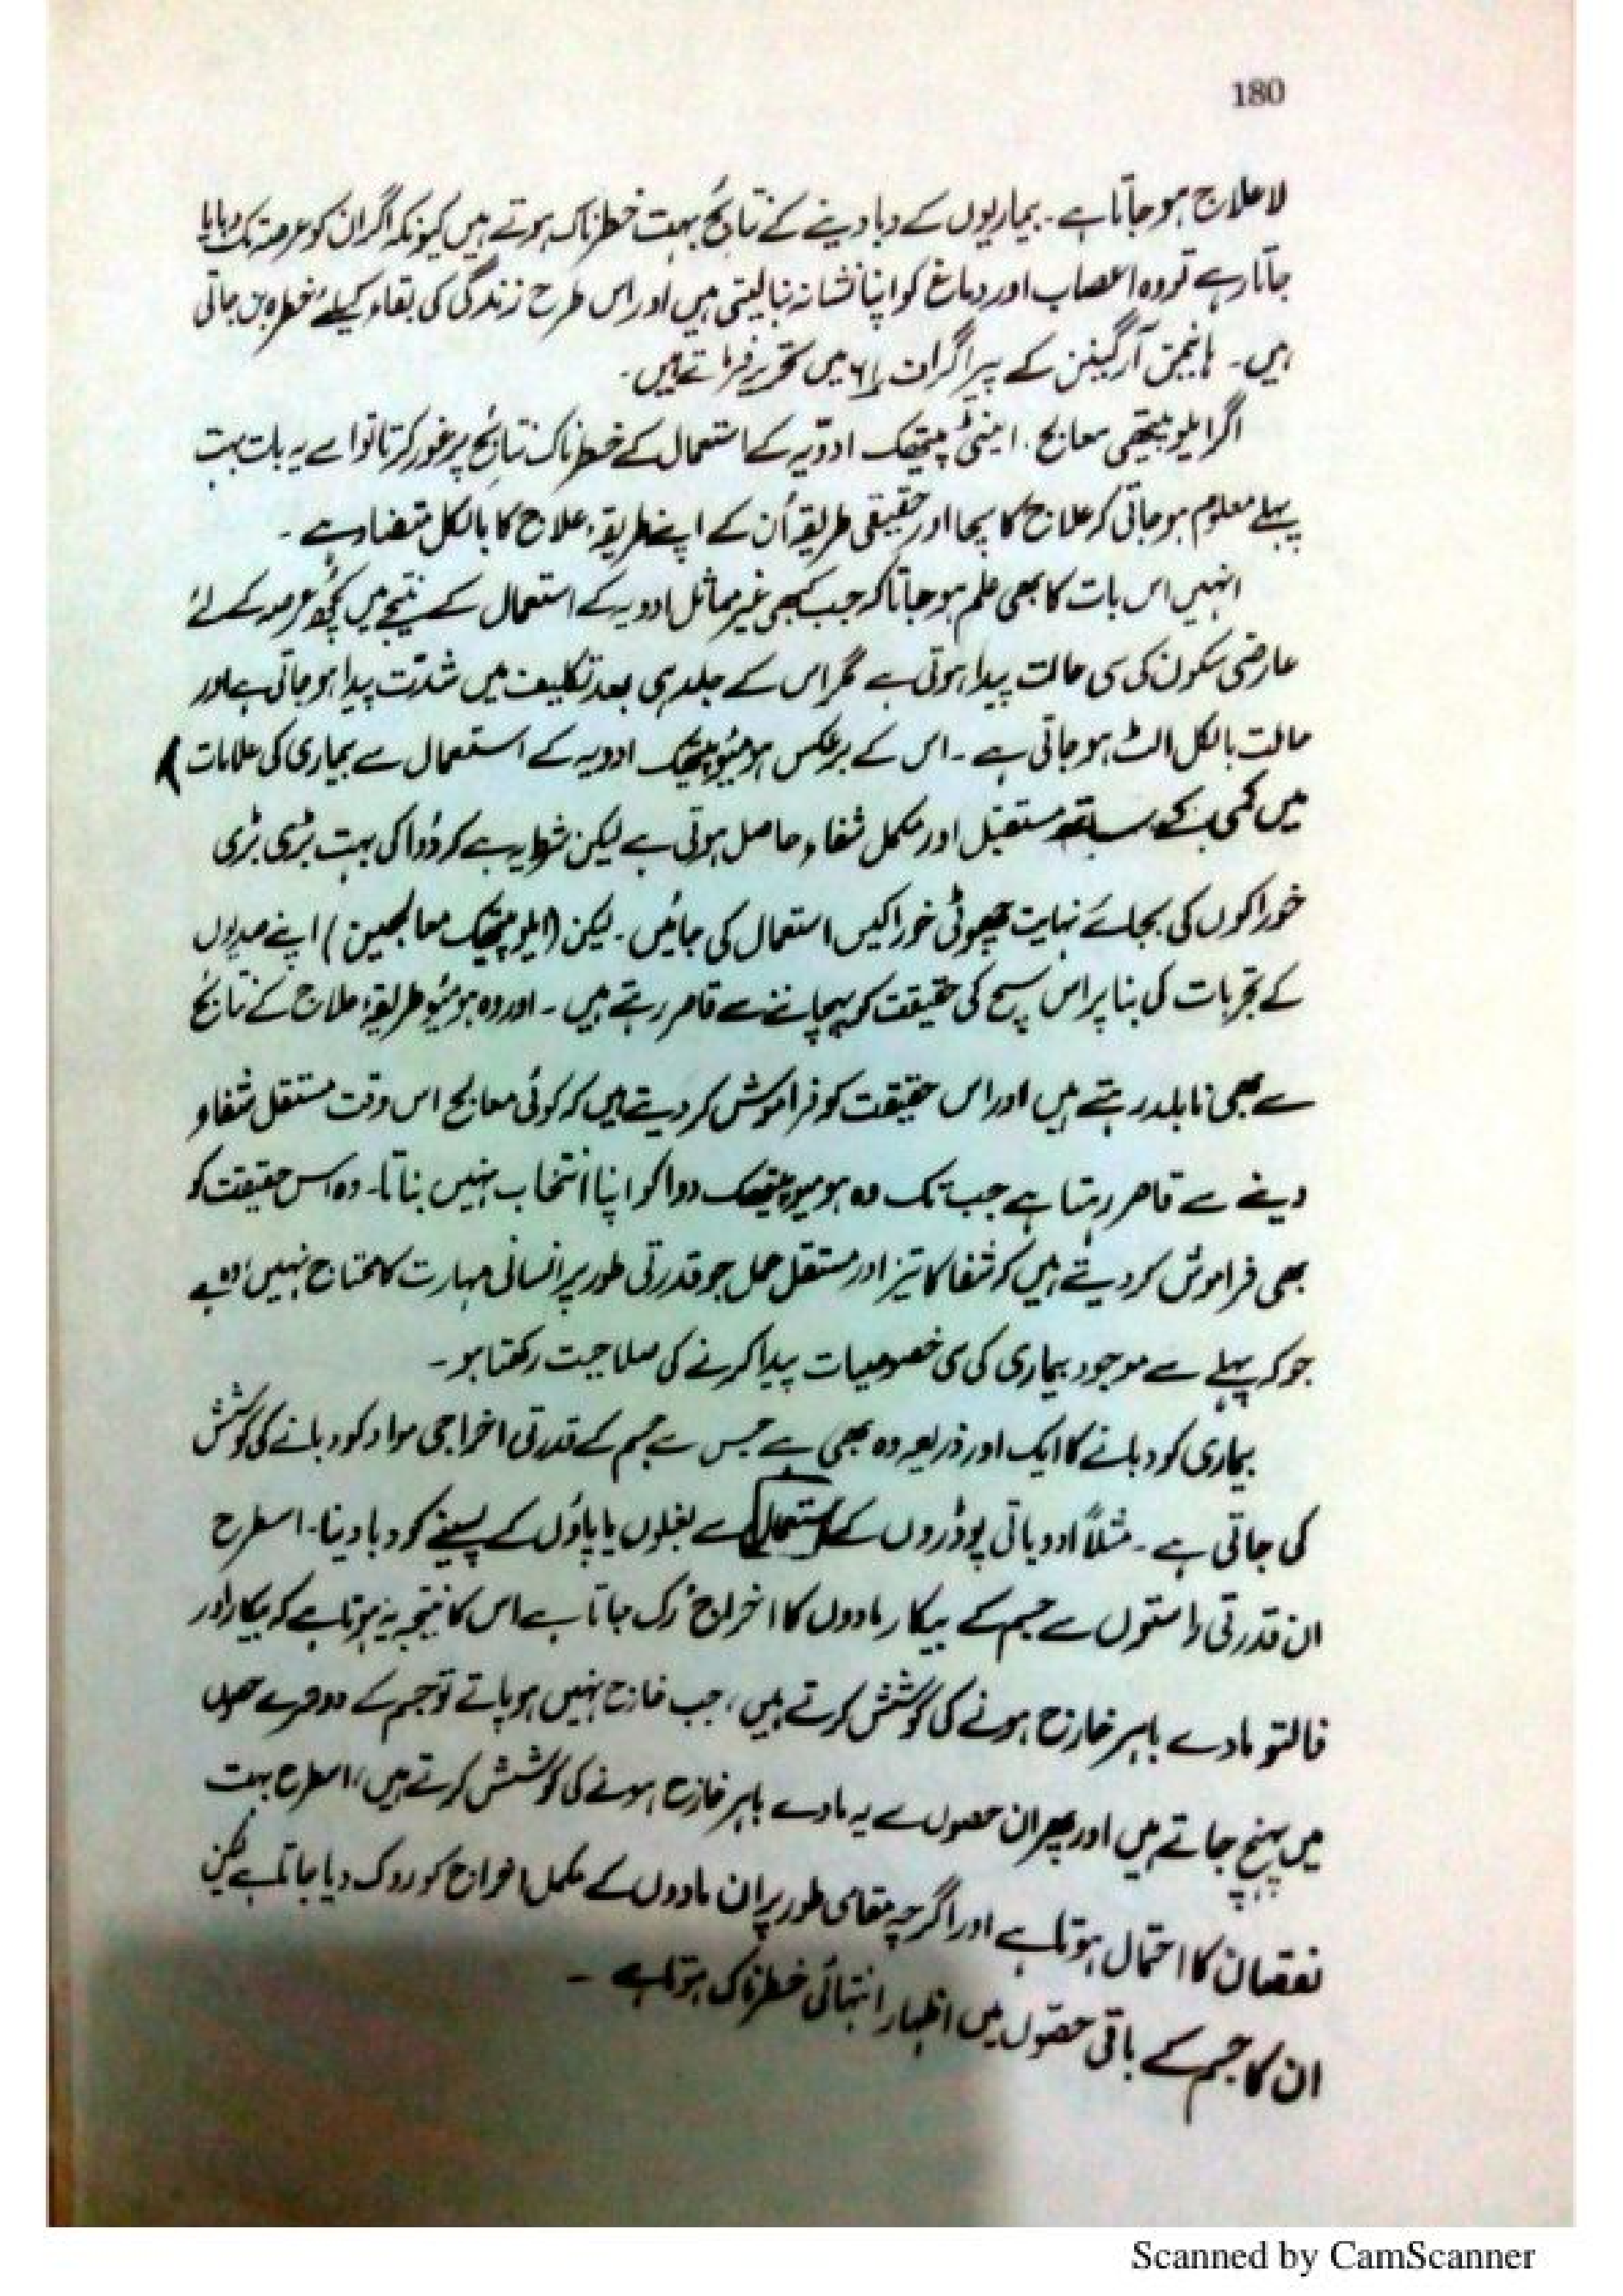 180
لاعلاج ہو جاتا ہے۔ بیماریوں کے دبا دینے کے نتائج بہت خطرناک ہوتے ہیں کیونکہ اگر ان کو عرصہ تک دبایا
جاتا رہے تو وہ اعصاب اور دماغ کو اپنا نشانہ بنا لیتی ہیں اور اس طرح زندگی کی بقاء کیلئے خطرہ بن جاتی
ہیں۔ ہانیمن آرگینن کے پیراگراف ۶۱ میں تحریر فرماتے ہیں۔
اگر ایلوپیتھی معالج، اینٹی پیتھک ادویہ کے استعمال کے خطرناک نتائج پر غور کرتا تو اسے یہ بات بہت
پہلے معلوم ہو جاتی کہ علاج کا سچا اور حقیقی طریقہ اُن کے اپنے طریقۂ علاج کا بالکل متضاد ہے۔
انہیں اس بات کا بھی علم ہو جاتا کہ جب کبھی غیر مماثل ادویہ کے استعمال کے نتیجے میں کچھ عرصہ کے لئے
عارضی سکون کی سی حالت پیدا ہوتی ہے مگر اس کے جلد ہی بعد تکلیف میں شدّت پیدا ہو جاتی ہے اور
حالت بالکل الٹ ہو جاتی ہے۔ اس کے برعکس ہومیوپیتھک ادویہ کے استعمال سے بیماری کی علامات
میں کمی کے ساتھ مستقبل اور مکمل شفاء حاصل ہوتی ہے لیکن شرط یہ ہے کہ دوا کی بہت بڑی بڑی
خوراکوں کی بجائے نہایت چھوٹی خوراکیں استعمال کی جائیں۔ لیکن (ایلوپیتھک معالجین) اپنے صدیوں
کے تجربات کی بنا پر اس سچ کی حقیقت کو پہچاننے سے قاصر رہتے ہیں۔ اور وہ ہومیو طریقۂ علاج کے نتائج
سے بھی نابلد رہتے ہیں اور اس حقیقت کو فراموش کر دیتے ہیں کہ کوئی معالج اس وقت مستقل شفاء
دینے سے قاصر رہتا ہے جب تک وہ ہومیوپیتھک دوا کو اپنا انتخاب نہیں بناتا۔ وہ اس حقیقت کو
بھی فراموش کر دیتے ہیں کہ شفا کا تیز اور مستقل عمل جو قدرتی طور پر انسانی مہارت کا محتاج نہیں وہ ہے
جو کہ پہلے سے موجود بیماری کی سی خصوصیات پیدا کرنے کی صلاحیت رکھتا ہو۔
بیماری کو دبانے کا ایک اور ذریعہ وہ بھی ہے جس سے جسم کے قدرتی اخراجی مواد کو دبانے کی کوشش
کی جاتی ہے۔ مثلاً ادویاتی پوڈروں کے استعمال سے بغلوں یا پاؤں کے پسینے کو دبا دینا۔ اسطرح
ان قدرتی راستوں سے جسم کے بیکار مادوں کا اخراج رُک جاتا ہے اس کا نتیجہ یہ ہوتا ہے کہ بیکار اور
فالتو مادے باہر خارج ہونے کی کوشش کرتے ہیں، جب خارج نہیں ہو پاتے تو جسم کے دوسرے حصوں
میں پہنچ جاتے ہیں اور پھر ان حصوں سے یہ مادے باہر خارج ہونے کی کوشش کرتے ہیں، اسطرح بہت
نقصان کا احتمال ہوتا ہے اور اگرچہ مقامی طور پر ان مادوں کے مکمل اخراج کو روک دیا جاتا ہے لیکن
ان کا جسم کے باقی حصّوں میں اظہار انتہائی خطرناک ہوتا ہے۔
Scanned by CamScanner